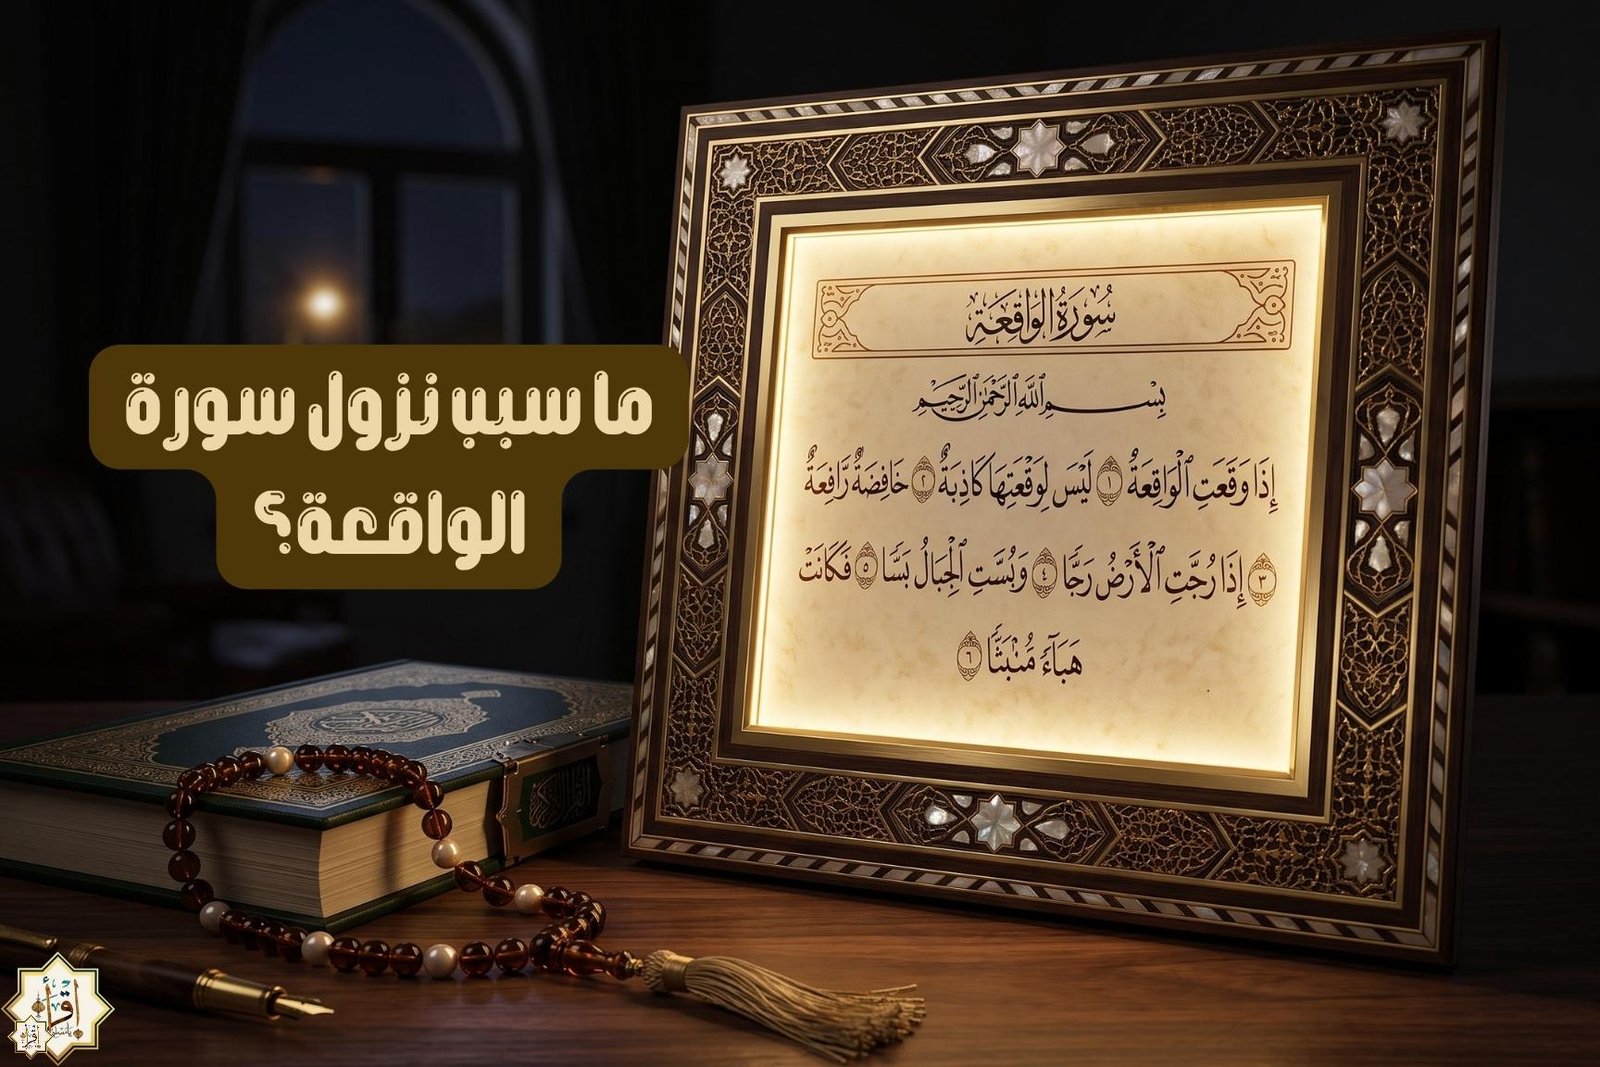 ما سبب نزول سورة
الواقعة؟
سُورَةُ الوَاقِعَةِ
بِسْمِ ٱللَّهِ ٱلرَّحْمَٰنِ ٱلرَّحِيمِ
إِذَا وَقَعَتِ ٱلْوَاقِعَةُ ١ لَيْسَ لِوَقْعَتِهَا كَاذِبَةٌ ٢ خَافِضَةٌ رَّافِعَةٌ
٣ إِذَا رُجَّتِ ٱلْأَرْضُ رَجًّا ٤ وَبُسَّتِ ٱلْجِبَالُ بَسًّا ٥ فَكَانَتْ
هَبَآءً مُّنۢبَثًّا ٦
اقرأ